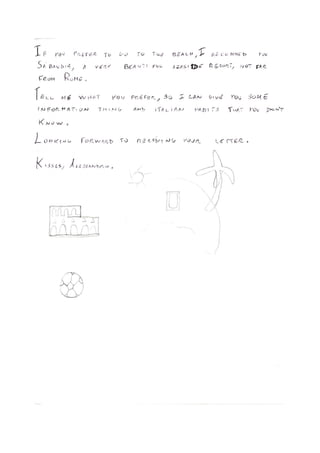 IF YOU PREFER TO GO TO THE BEACH, I RECOMMED YOU
SABAUDIA, A VERY BEAUTIFUL SEASIDE RESORT, NOT FAR
FROM ROME.
TELL ME WHAT YOU PREFER, SO I CAN GIVE YOU SOME
INFORMATION THING AND ITALIAN HABITS THAT YOU DON'T
KNOW.
LOOKING FORWARD TO READING YOUR LETTER.
KISSES, ALESSANDRA.